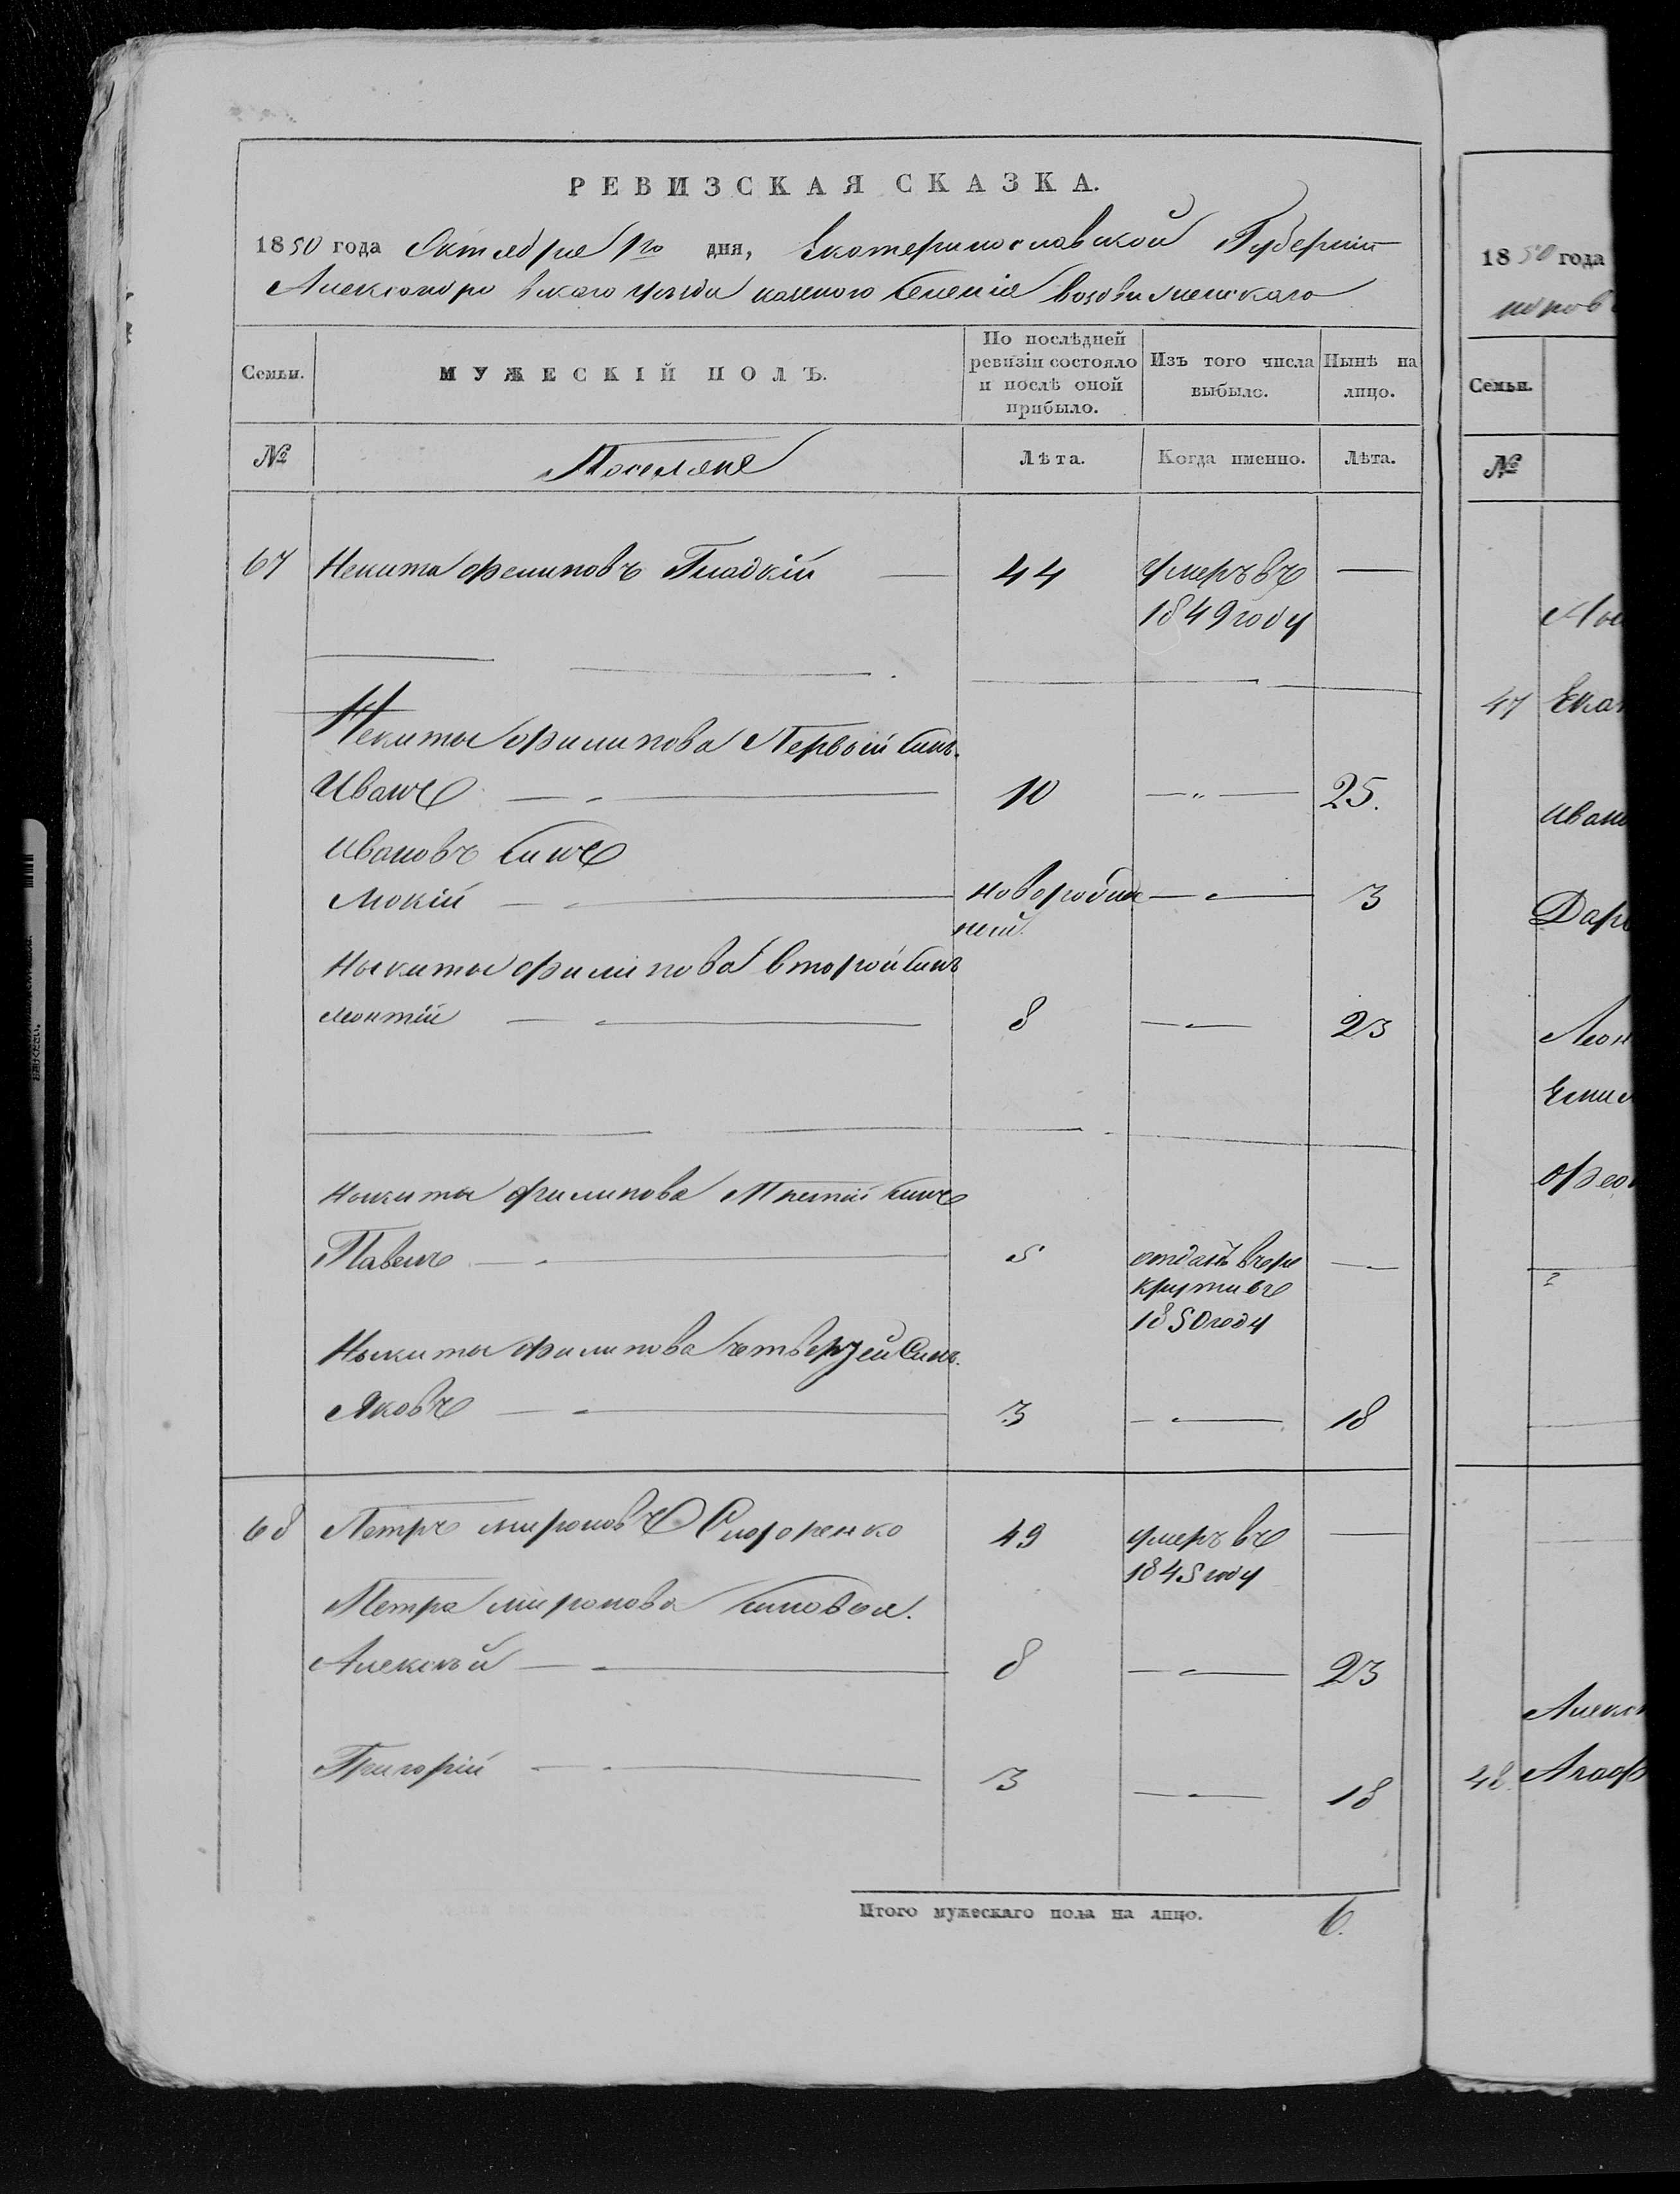 РЕВИЗСКАЯ СКАЗКА.
1850 года Октебрие 1го дня, Екатеринославской Губернии
Александровскаго уезда казеного селения Воздвиженскаго
Семьи.
МУЖЕСКІЙ ПОЛЪ.
По послѣдней ревизіи состояло и послѣ оной прибыло.
Изъ того числа выбыло.
Нынѣ на лицо.
№
Поселяне
Лѣта.
Когда именно.
Лѣта.
67 Некита Фелиповъ Гладкій 44 умеръ въ
1849 году
Некиты Филипова Первой синъ
Иванъ 10 25.
Ивановъ синъ
Мокій новородив 3
ший
Ныкиты Филипова второй синъ
Леонтій 8 23
Ныкиты Филипова Третій синъ
Павелъ 5 отданъ вре
круты въ
1850 году
Ныкиты Филипова четвертей Синъ
Яковъ 3 18
68 Петръ Мироновъ Сидоренко 49 умеръ въ
1845 году
Петра Миронова синовья.
Алексѣй 8 23
Григорій 3 18
Итого мужескаго пола на лицо. 6.
1850 года
Семьи.
№
47 Ека
Ивано
Дарь
Леон
Емил
Фео
Алекс
48 Агаф